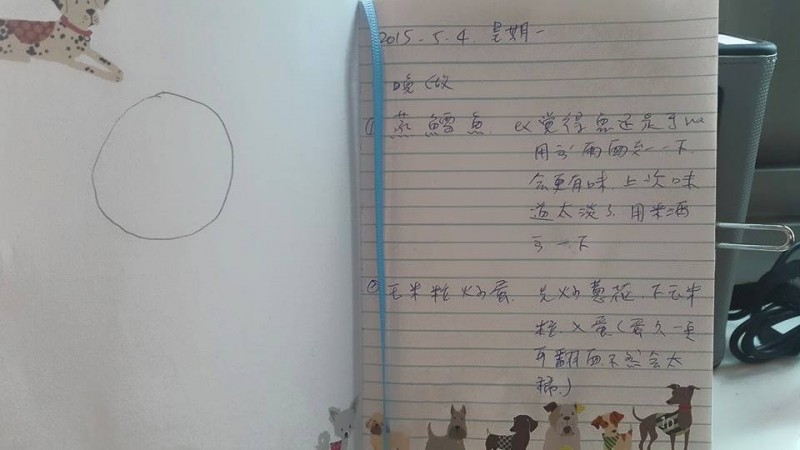 2015.5.4. 星期一
晚饭
① 蒸鳕鱼. 觉得鱼还是可以
用 两面 一下
会更有味 上次味
道太淡了. 用米酒
一下
② 玉米粒炒蛋. 先炒葱花. 下玉米
粒 蛋(蛋久一点
再翻面不然会太
稀)